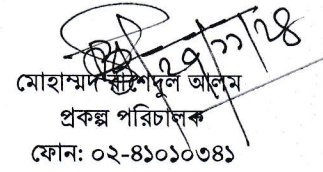 ২৭/১১/২৪
মোহাম্মদ রাশেদুল আলম
প্রকল্প পরিচালক
ফোন: ০২-৪১০১০৩৪১